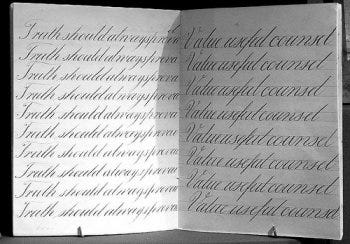 Truth should always prevai
Truth should always prevai
Truth should always prevai
Truth should always prevai
Truth should always prevai
Truth should always prevai
Truth should always prevai
Truth should always prevai
Truth should always prevai
Truth should always prevai
Value useful counsel
Value useful counsel
Value useful counsel
Value useful counsel
Value useful counsel
Value useful counsel
Value useful counsel
Value useful counsel